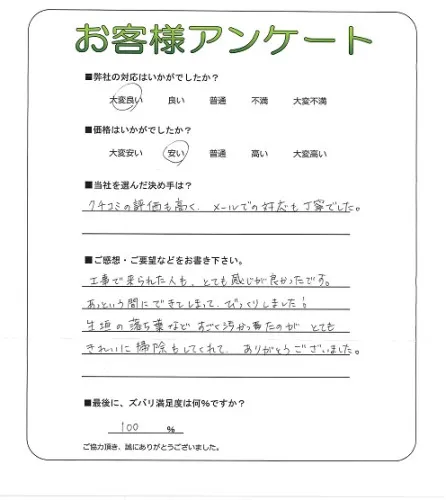 お客様アンケート
■弊社の対応はいかがでしたか？
大変良い 良い 普通 不満 大変不満
■価格はいかがでしたか？
大変安い 安い 普通 高い 大変高い
■当社を選んだ決め手は？
クチコミの評価も高く、メールでの対応も丁寧でした。
■ご感想・ご要望などをお書き下さい。
工事で来られた人も、とても感じが良かったです。
あっという間にできてしまって、びっくりしました！
生垣の落ち葉など すごく汚かったのが とても
きれいに掃除もしてくれて、ありがとうございました。
■最後に、ズバリ満足度は何%ですか？
100 %
ご協力頂き、誠にありがとうございました。